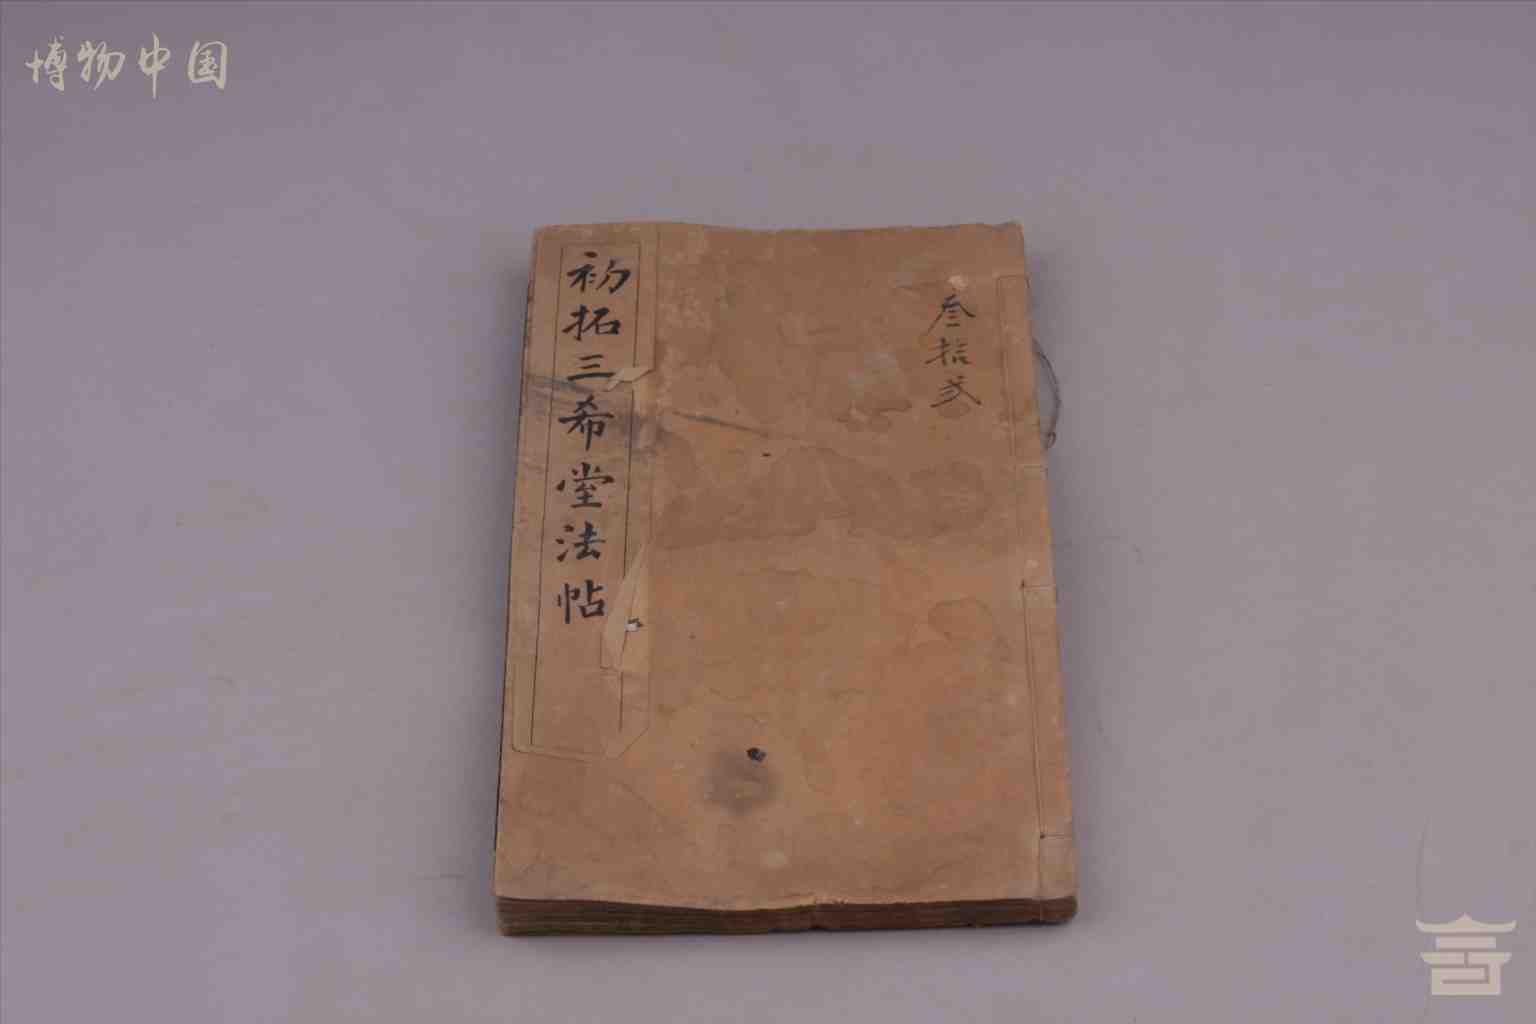 博物中国
初拓三希堂法帖
叁拾弍